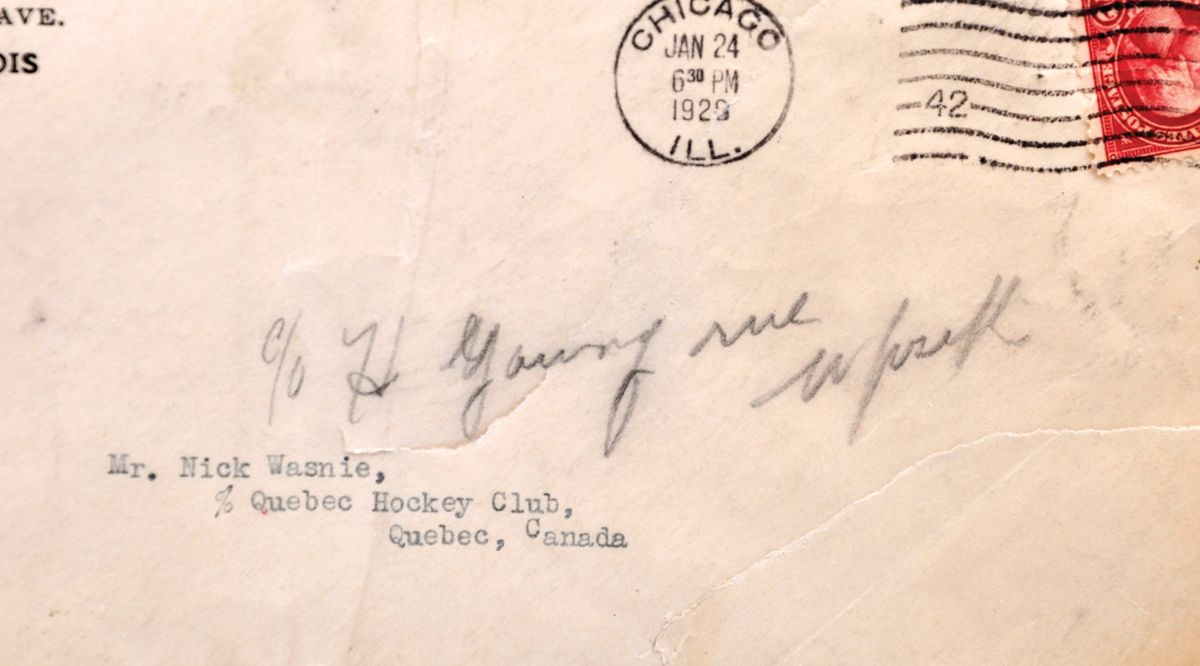 AVE.
OIS
CHICAGO
JAN 24
6 30 PM
1929
ILL.
42
c/o H Young rue
Mr. Nick Wasnie,
c/o Quebec Hockey Club,
Quebec, Canada